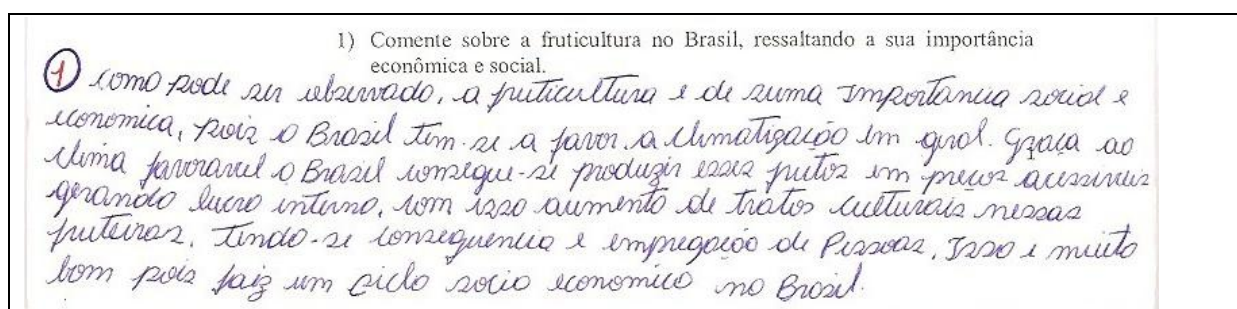 1) Comente sobre a fruticultura no Brasil, ressaltando a sua importância
econômica e social.
1 como pode ser observado, a fruticultura e de suma importância social e
economica, pois o Brasil tem-se a favor a climatização em geral. Graça ao
clima favoravel o Brasil consegue-se produzir esses frutos em preços acessiveis
gerando lucro interno, com isso aumento de tratos culturais nessas
fruteiras. Tendo-se consequencia e empregação de Pessoas, Isso e muito
bom pois faiz um ciclo socio economico no Brasil.